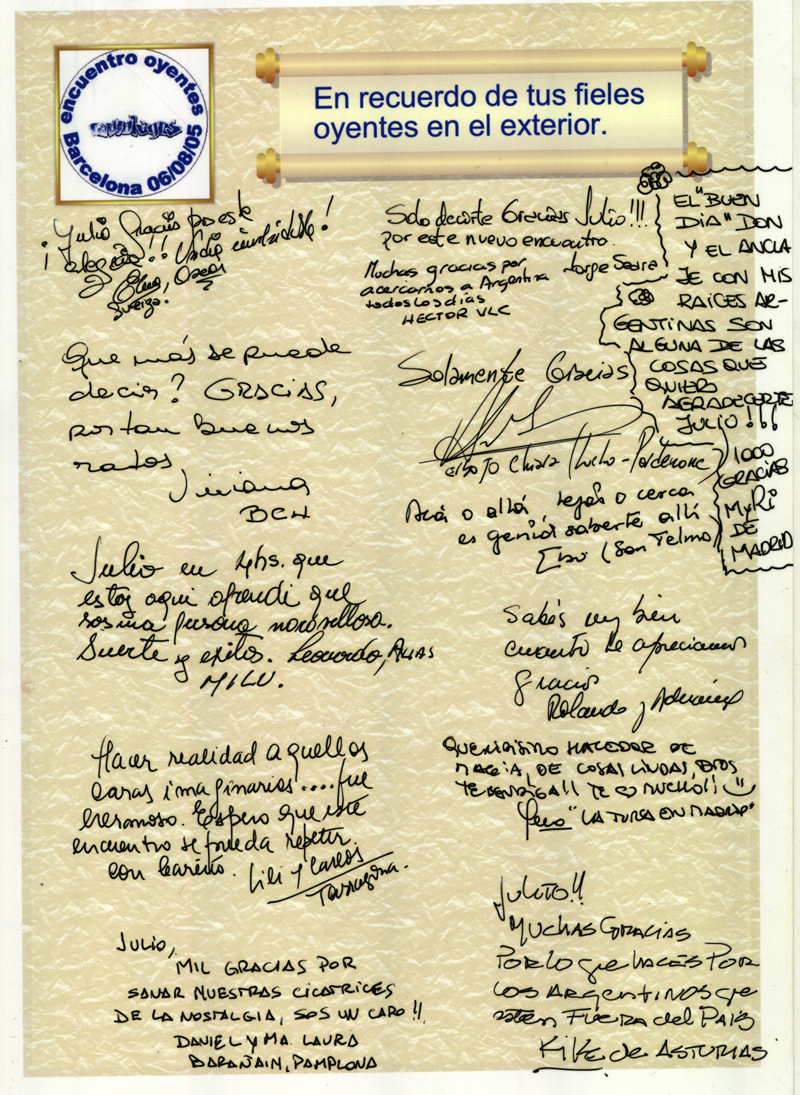 encuentro oyentes
Barcelona 06/08/05
En recuerdo de tus fieles
oyentes en el exterior.
¡Julio Gracias por este
alegría!! Undía inolvidable!
Oscar
Sueiza.
Solo decirte Gracias Julio!!!
por este nuevo encuentro.
Jorge
Muchas gracias por
acercarnos a Argentina
todos los días
HECTOR VLC
EL "BUEN
DIA" DON
Y EL ANCLA
JE CON MIS
RAÍCES AR-
GENTINAS SON
ALGUNA DE LAS
COSAS QUE
QUIERO
AGRADECERTE
JULIO!!!
1000
GRACIAS
MyRi
DE
MADRID
Que más se puede
decir? GRACIAS,
por tan buenos
ratos,
Viviana
BCN
Solamente Gracias
Chiara
Acá o allá, lejos o cerca
es genial saberte allá
(San Telmo)
Julio en 4hs. que
estoy aqui aprendi que
sos una persona maravillosa.
Suerte y exitos. Leonardo, ALIAS
MILU.
Sabés muy bien
cuanto te apreciamos
gracias
Rolando y Adriana
Hacer realidad a quellos
caras imaginarias....fue
hermoso. Espero que este
encuentro se pueda repetir.
con Cariño. Lili y Carlos
Tarragona.
QUERIDISIMO HACEDOR DE
MAGIA, DE COSAS LINDAS, DIOS
TE BENDIGA!! TE Q MUCHO!!
"LA TURCA EN MADRID"
JULIO,
MIL GRACIAS POR
SANAR NUESTRAS CICATRICES
DE LA NOSTALGIA, SOS UN CAPO!!
DANIEL Y MA. LAURA
BARAÑAIN, PAMPLONA
JULITO!!
MUCHAS GRACIAS
POR LO que HACÉS POR
LOS ARGENTINOS que
estén FUERA del PAÍS
KIKE de ASTURIAS